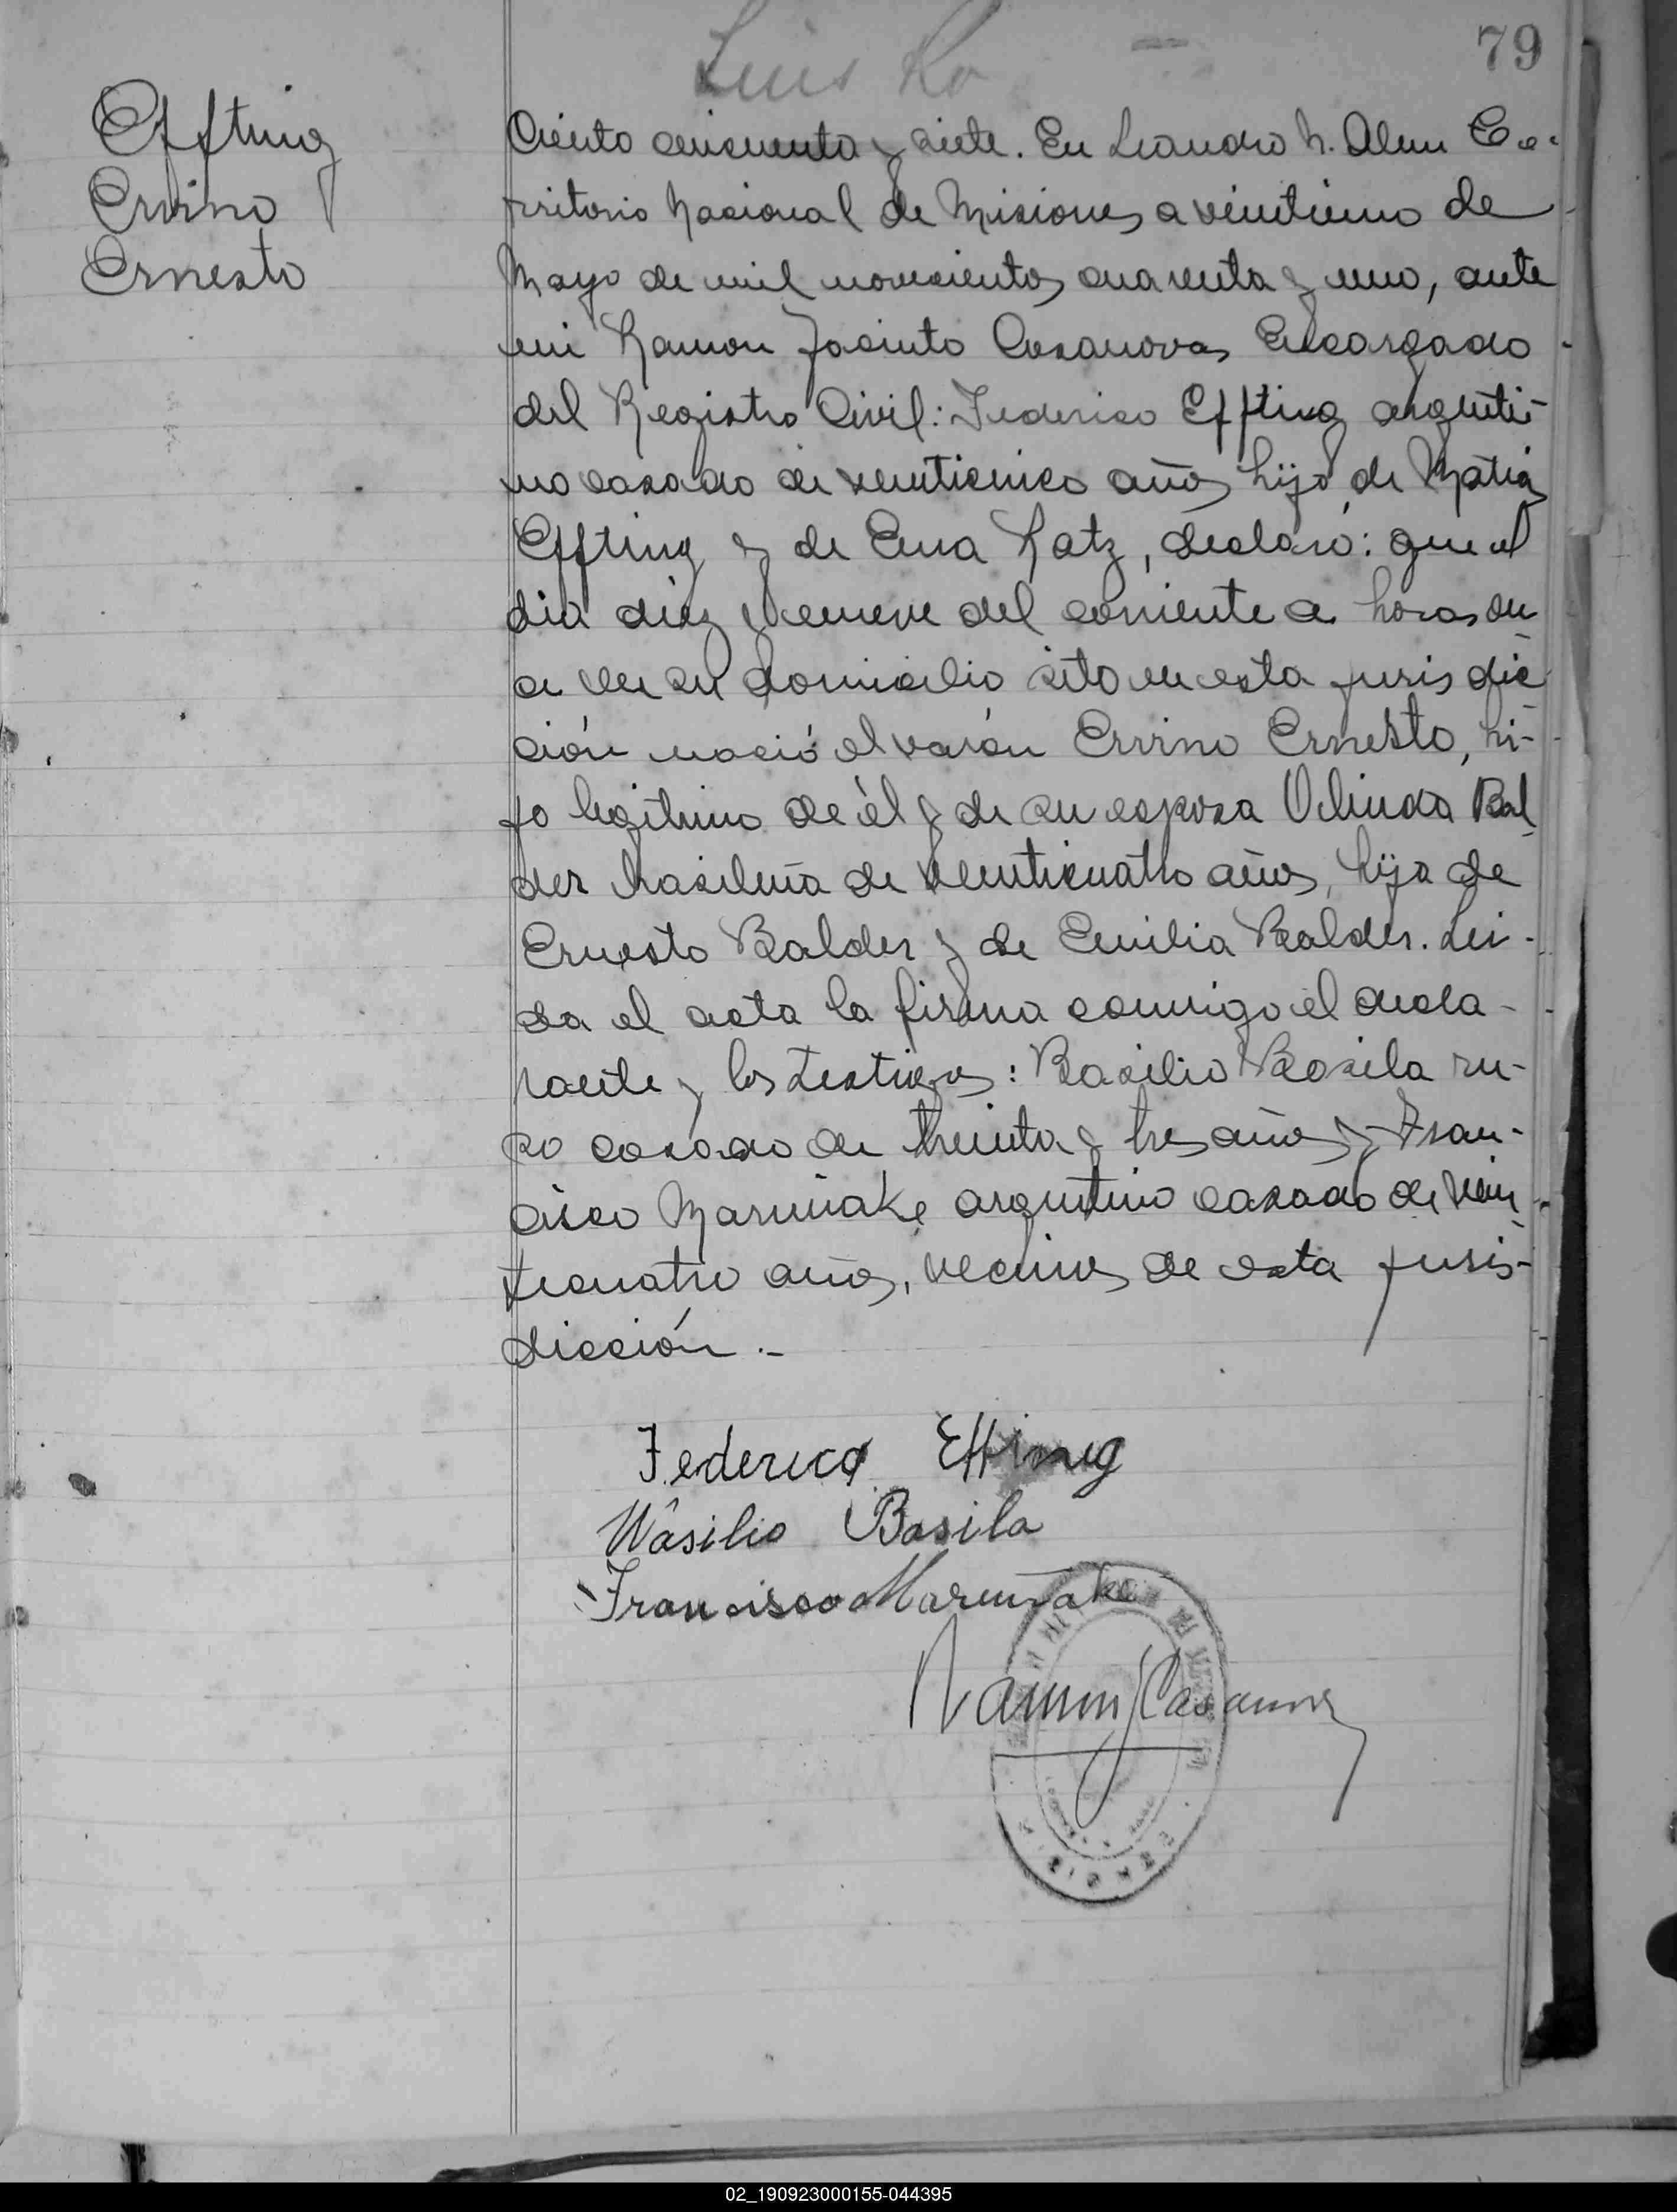 79
Luis Ro
Effting
Ervino
Ernesto
Ciento cincuenta y siete. En Leandro N. Alem Te-
rritorio Nacional de Misiones a veintiuno de
Mayo de mil novecientos cuarenta y uno, ante
mi Ramon Jacinto Casanovas Encargado
del Registro Civil: Federico Effting argenti-
no casado de veinticinco años hijo de Matias
Effting y de Ema Katz, declaró: que el
dia diez y nueve del corriente a horas on
ce en su domicilio sito en esta jurisdic
ción nació el varón Ervino Ernesto, hi-
jo legitimo de él y de su esposa Olinda Bal
der brasileña de veinticuatro años, hija de
Ernesto Balder y de Emilia Balder. Lei-
da el acta la firma conmigo el decla-
rante y los testigos: Basilio Basila ru-
so casado de treinta y tres años y Fran-
cisco Mariniake argentino casado de vein
ticuatro años, vecinos de esta juris-
dicción.-
Federico Effting
Wasilio Basila
Francisco Mariniake
Ramon J Casanovas
MISIONES
02_190923000155-044395